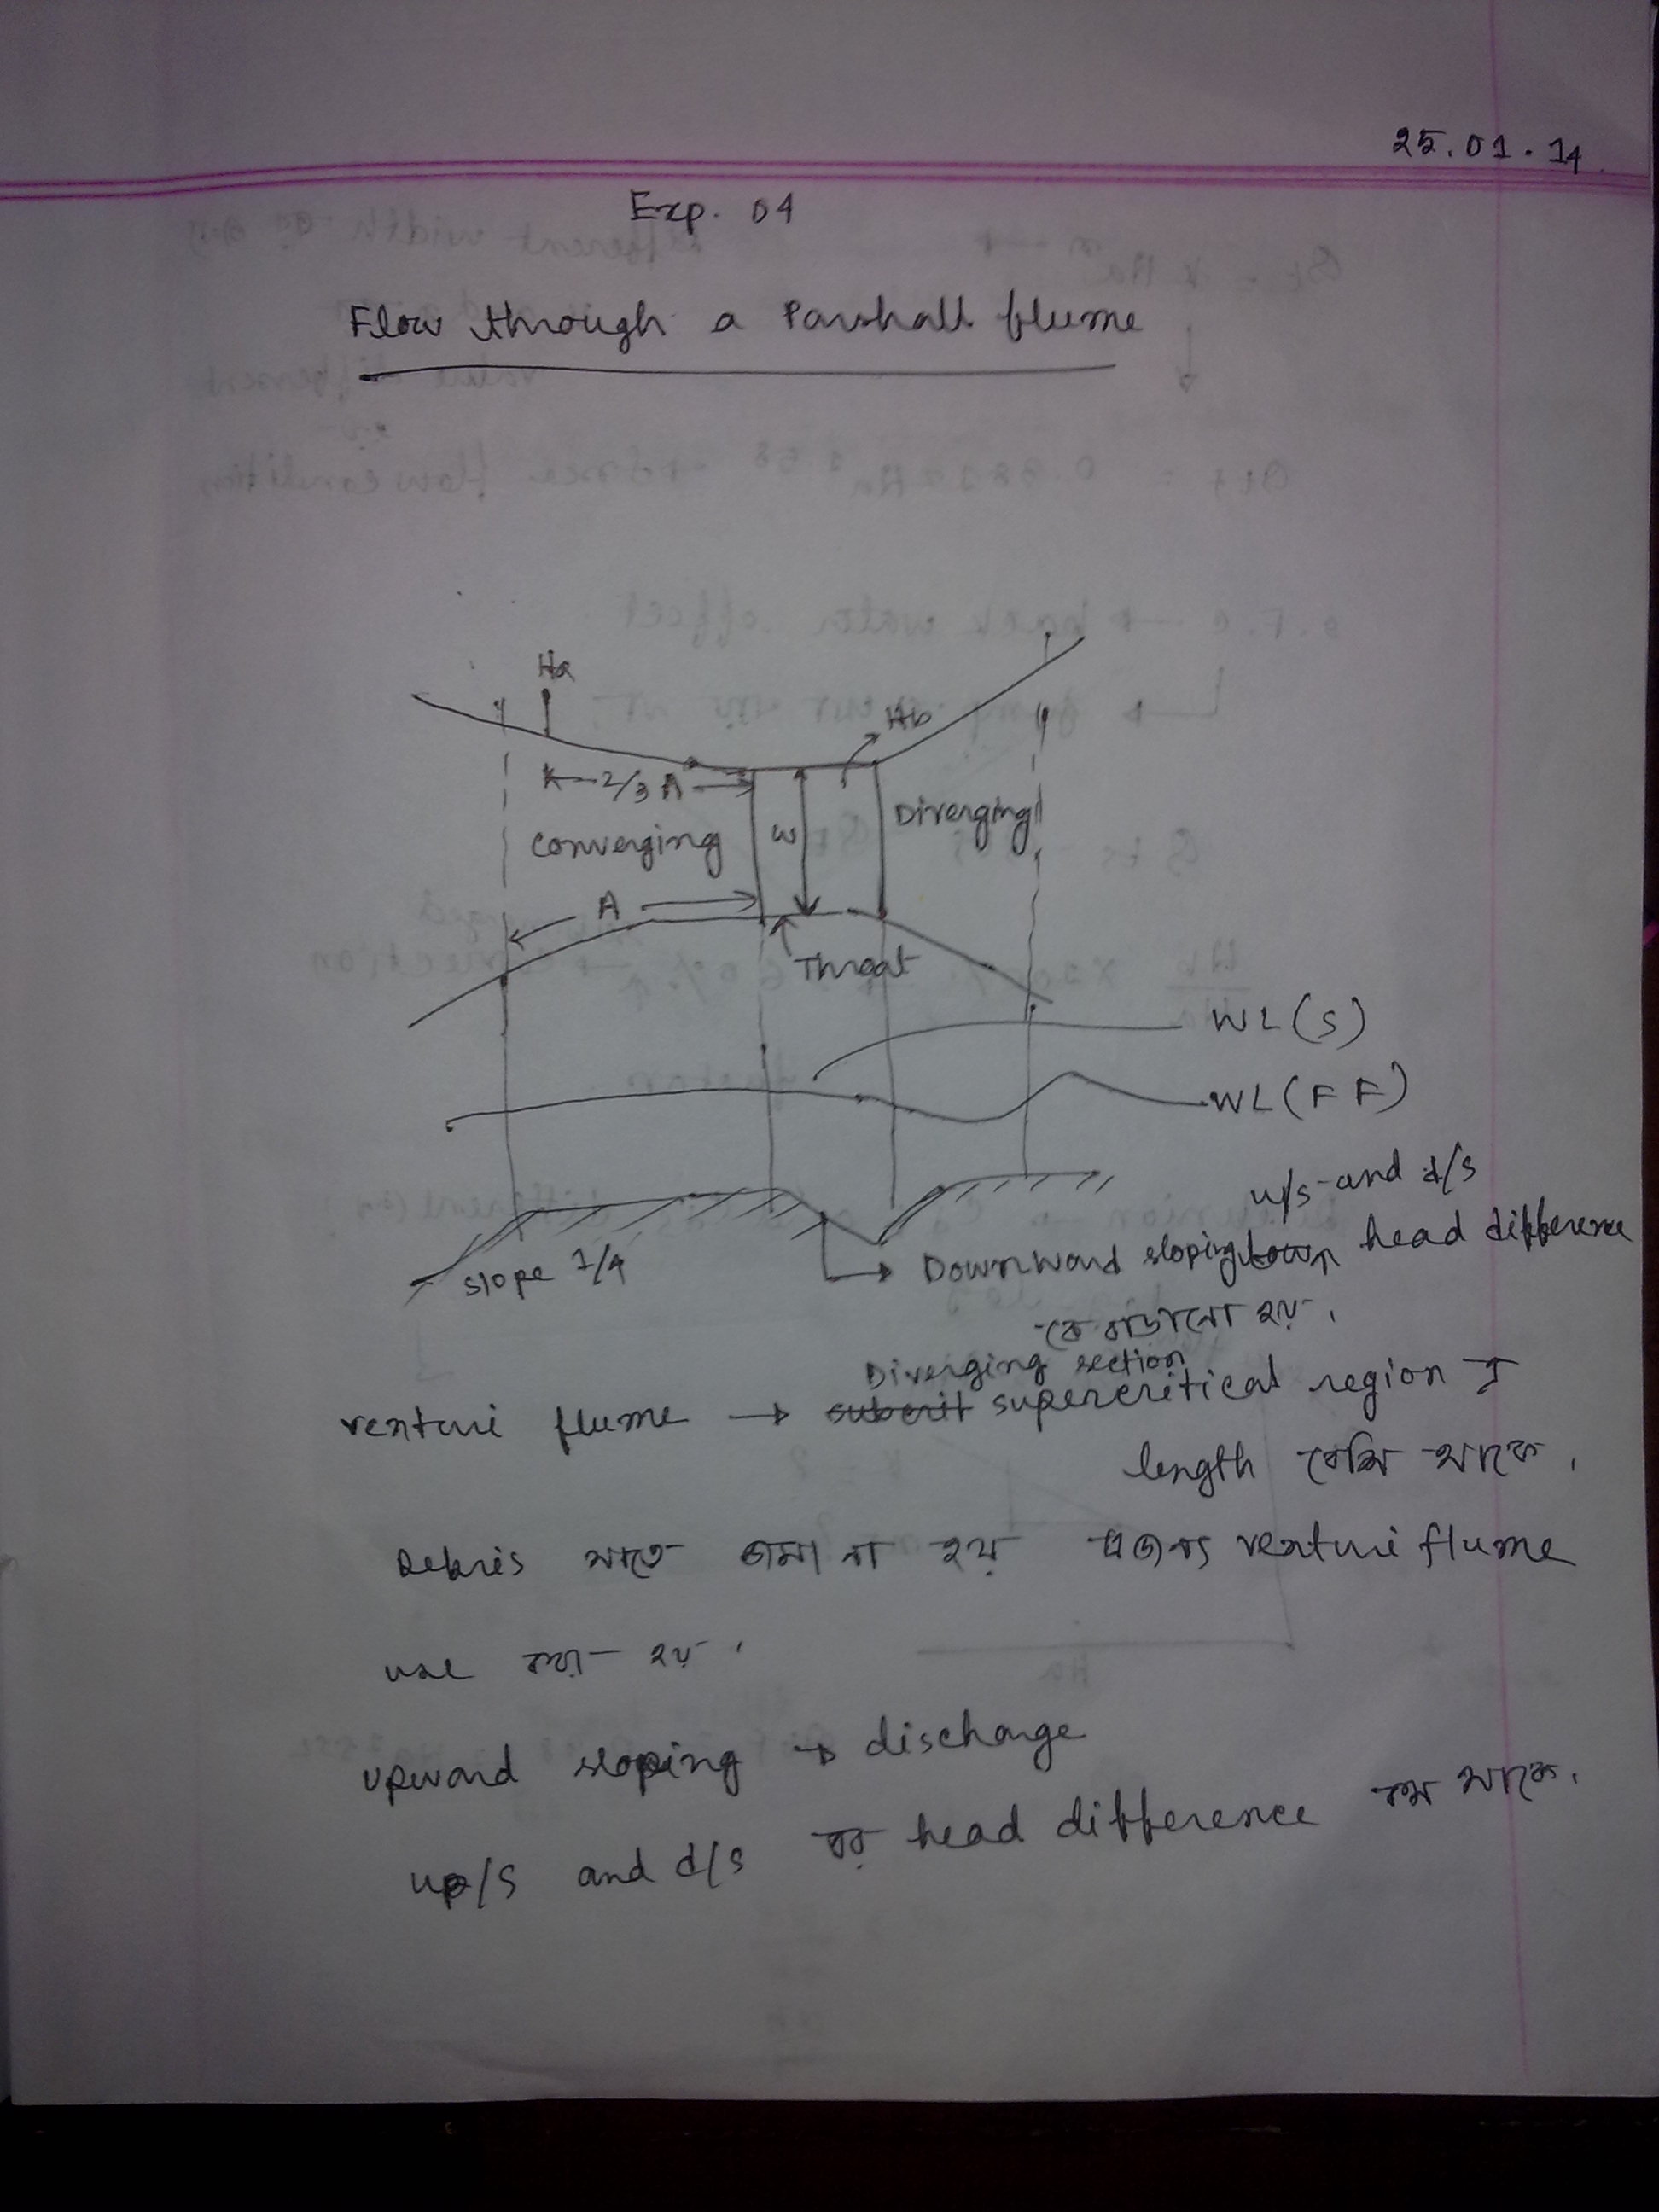 25.01.14
Exp. 04
Flow through a Parshall flume
Ha
Hb
2/3 A
Converging
W
Diverging
A
Throat
WL (S)
WL (F F)
slope 1/4
u/s and d/s
Downward sloping head difference
কে বাড়ানো হয়।
Diverging section
venturi flume → subcrit supercritical region এ
length বেশি থাকে।
Debris যাতে জমা না হয় এজন্য venturi flume
use করা হয়।
upward sloping → discharge
up/s and d/s এর head difference কম থাকে।